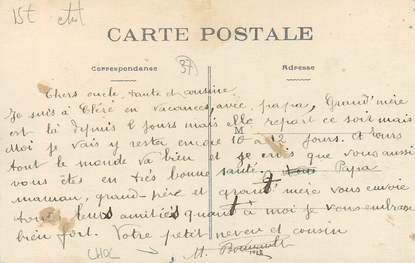 15€
CARTE POSTALE
37
Correspondance
Adresse
Chers oncle, tante et cousine
Je suis à Cléré en vacances, avec papa, Grand'mère
est là depuis 2 jours mais elle repart ce soir mais
M
Moi je vais y rester encore 10 à 12 jours. et Tours
tout le monde va bien et je crois que vous aussi
vous êtes en très bonne santé. Papa
maman, grand-père et grand'mère vous envoie
tous leurs amitiés quant à moi je vous embrasse
bien fort. Votre petit neveu et cousin
CHOC
M.
1912